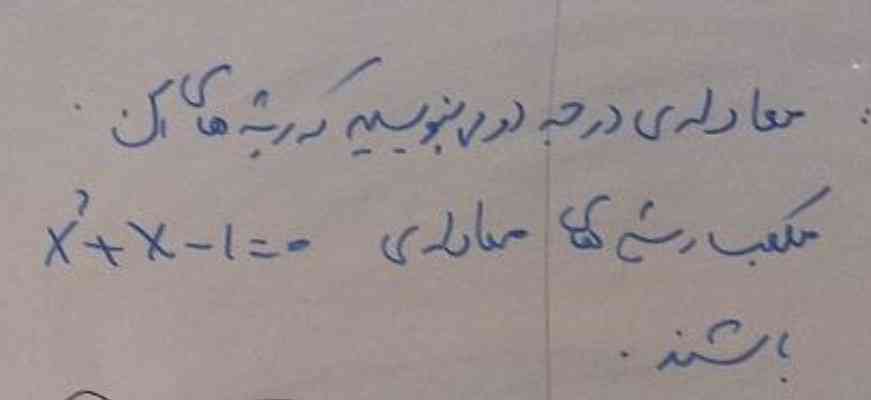 معادله‌ی درجه دومی بنویسید که ریشه های آن
مکعب ریشه های معادله‌ی x²+x-1=0
باشند.